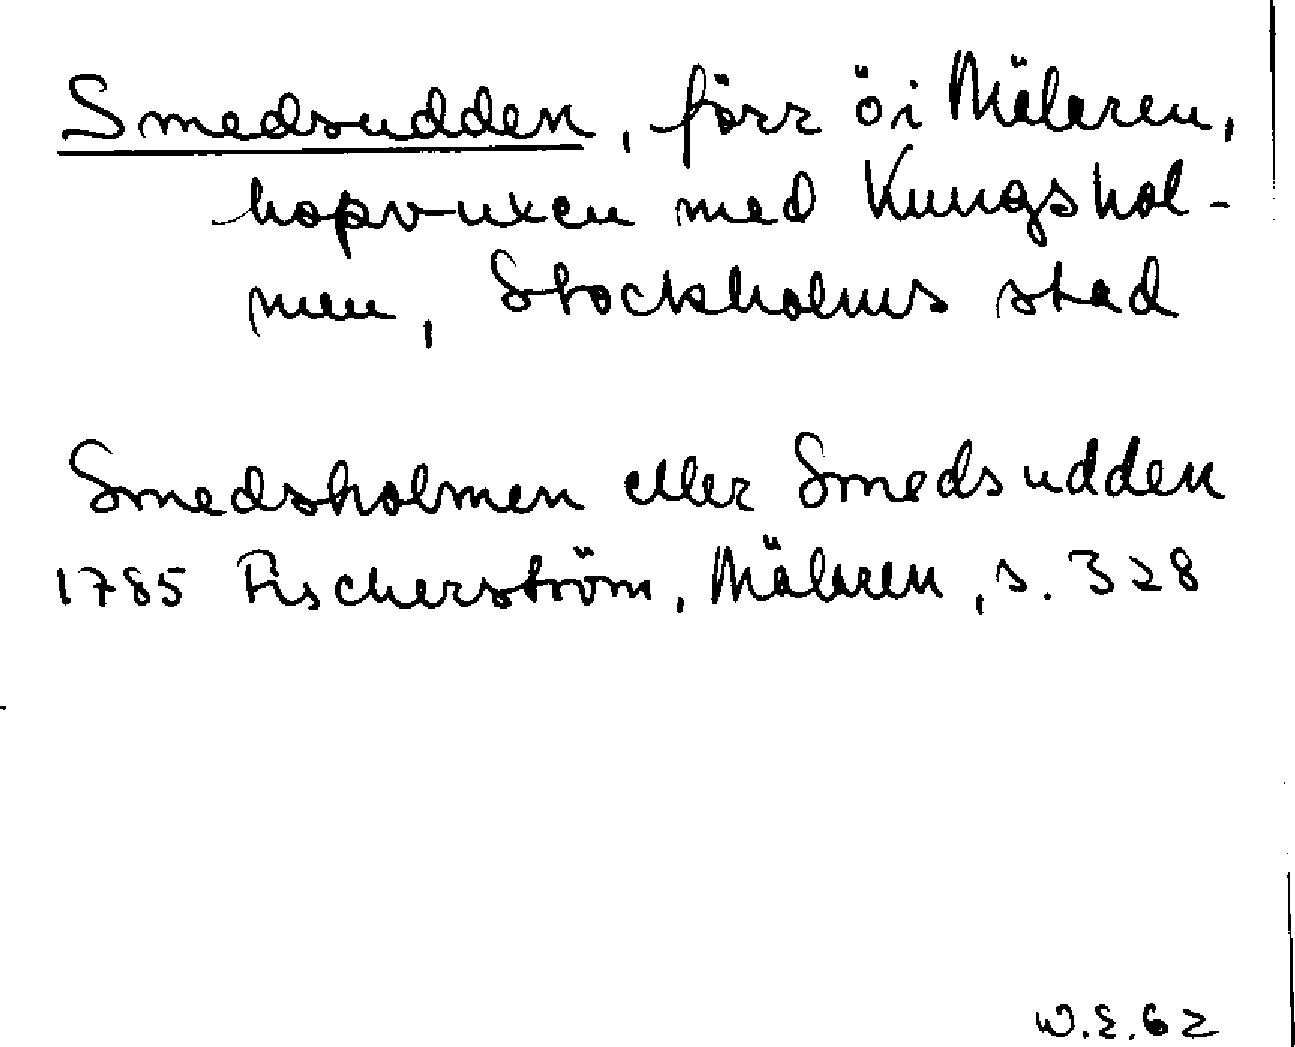 Smedsudden, förr ö i Mälaren,
hopvuxen med Kungshol-
men, Stockholms stad
Smedsholmen eller Smedsudden
1785 Fischerström, Mälaren, s. 328
W.E. 62